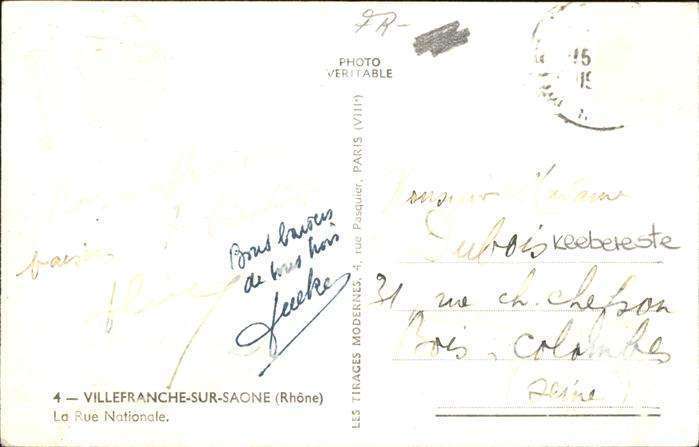 FR-
PHOTO
VERITABLE
15
19
baisers
Bons baisers
de tous trois
LES TIRAGES MODERNES, 4, rue Pasquier, PARIS (VIIIᵉ)
Monsieur Madame
Dubois keebereste
31 rue Ch. Chefson
Bois, Colombes
(Seine)
4 — VILLEFRANCHE-SUR-SAONE (Rhône)
La Rue Nationale.